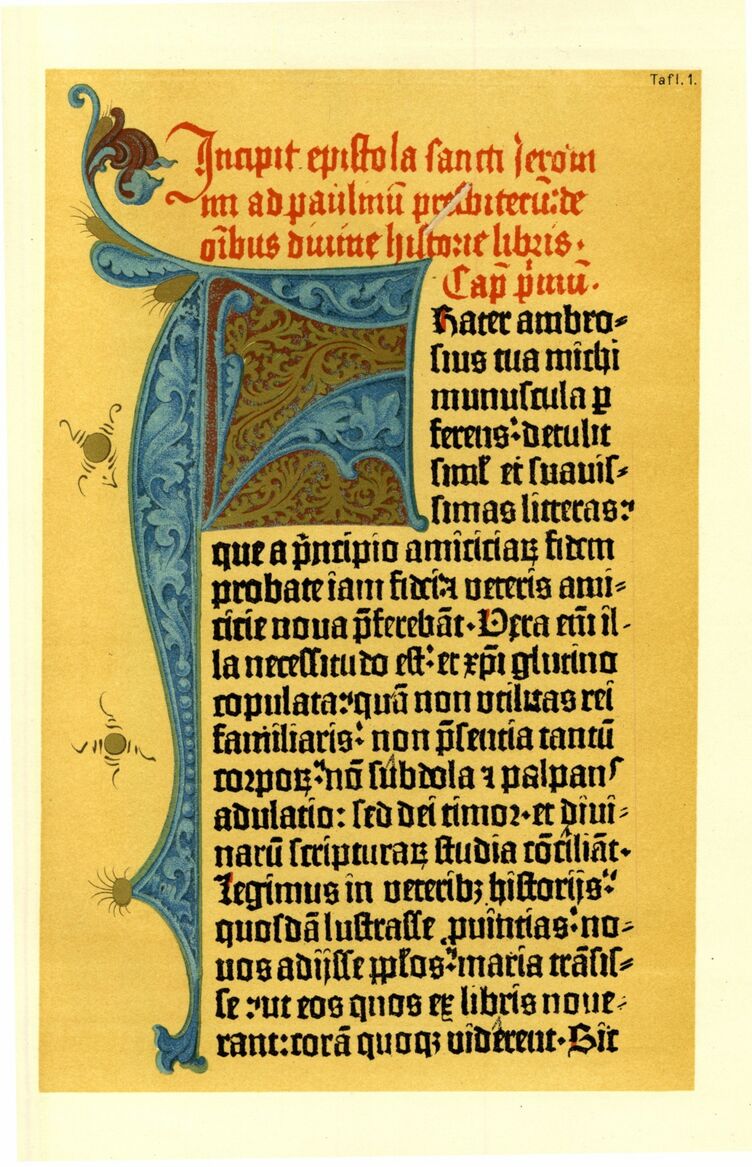 Tafl. 1.
Incipit epistola sancti Jeroni
mi ad paulinū presbiterū: de
oībus divine historie libris.
Cap̄ p̄imū.
Frater ambro⸗
sius tua michi
munuscula ꝑ
ferens: detulit
siml̄ et suavis⸗
simas litteras:
que a p̄ncipio amiciciaꝝ fidem
probate iam fidei ⁊ veteris ami⸗
citie noua p̄ferebāt. Vera em̄ il⸗
la necessitudo est: et xp̄i glutino
copulata: quā non utilitas rei
familiaris: non p̄sentia tantū
corpoꝝ: nō subdola ⁊ palpans
adulatio: sed dei timor. et divi⸗
narū scripturaꝝ studia cōciliāt.
Legimus in veteribꝫ historijs:
quosdā lustrasse ꝓvintias. no⸗
vos adijsse pplōs: maria trāsis⸗
se: ut eos quos ex libris nove⸗
rant: corā quoqꝫ viderent. Sic